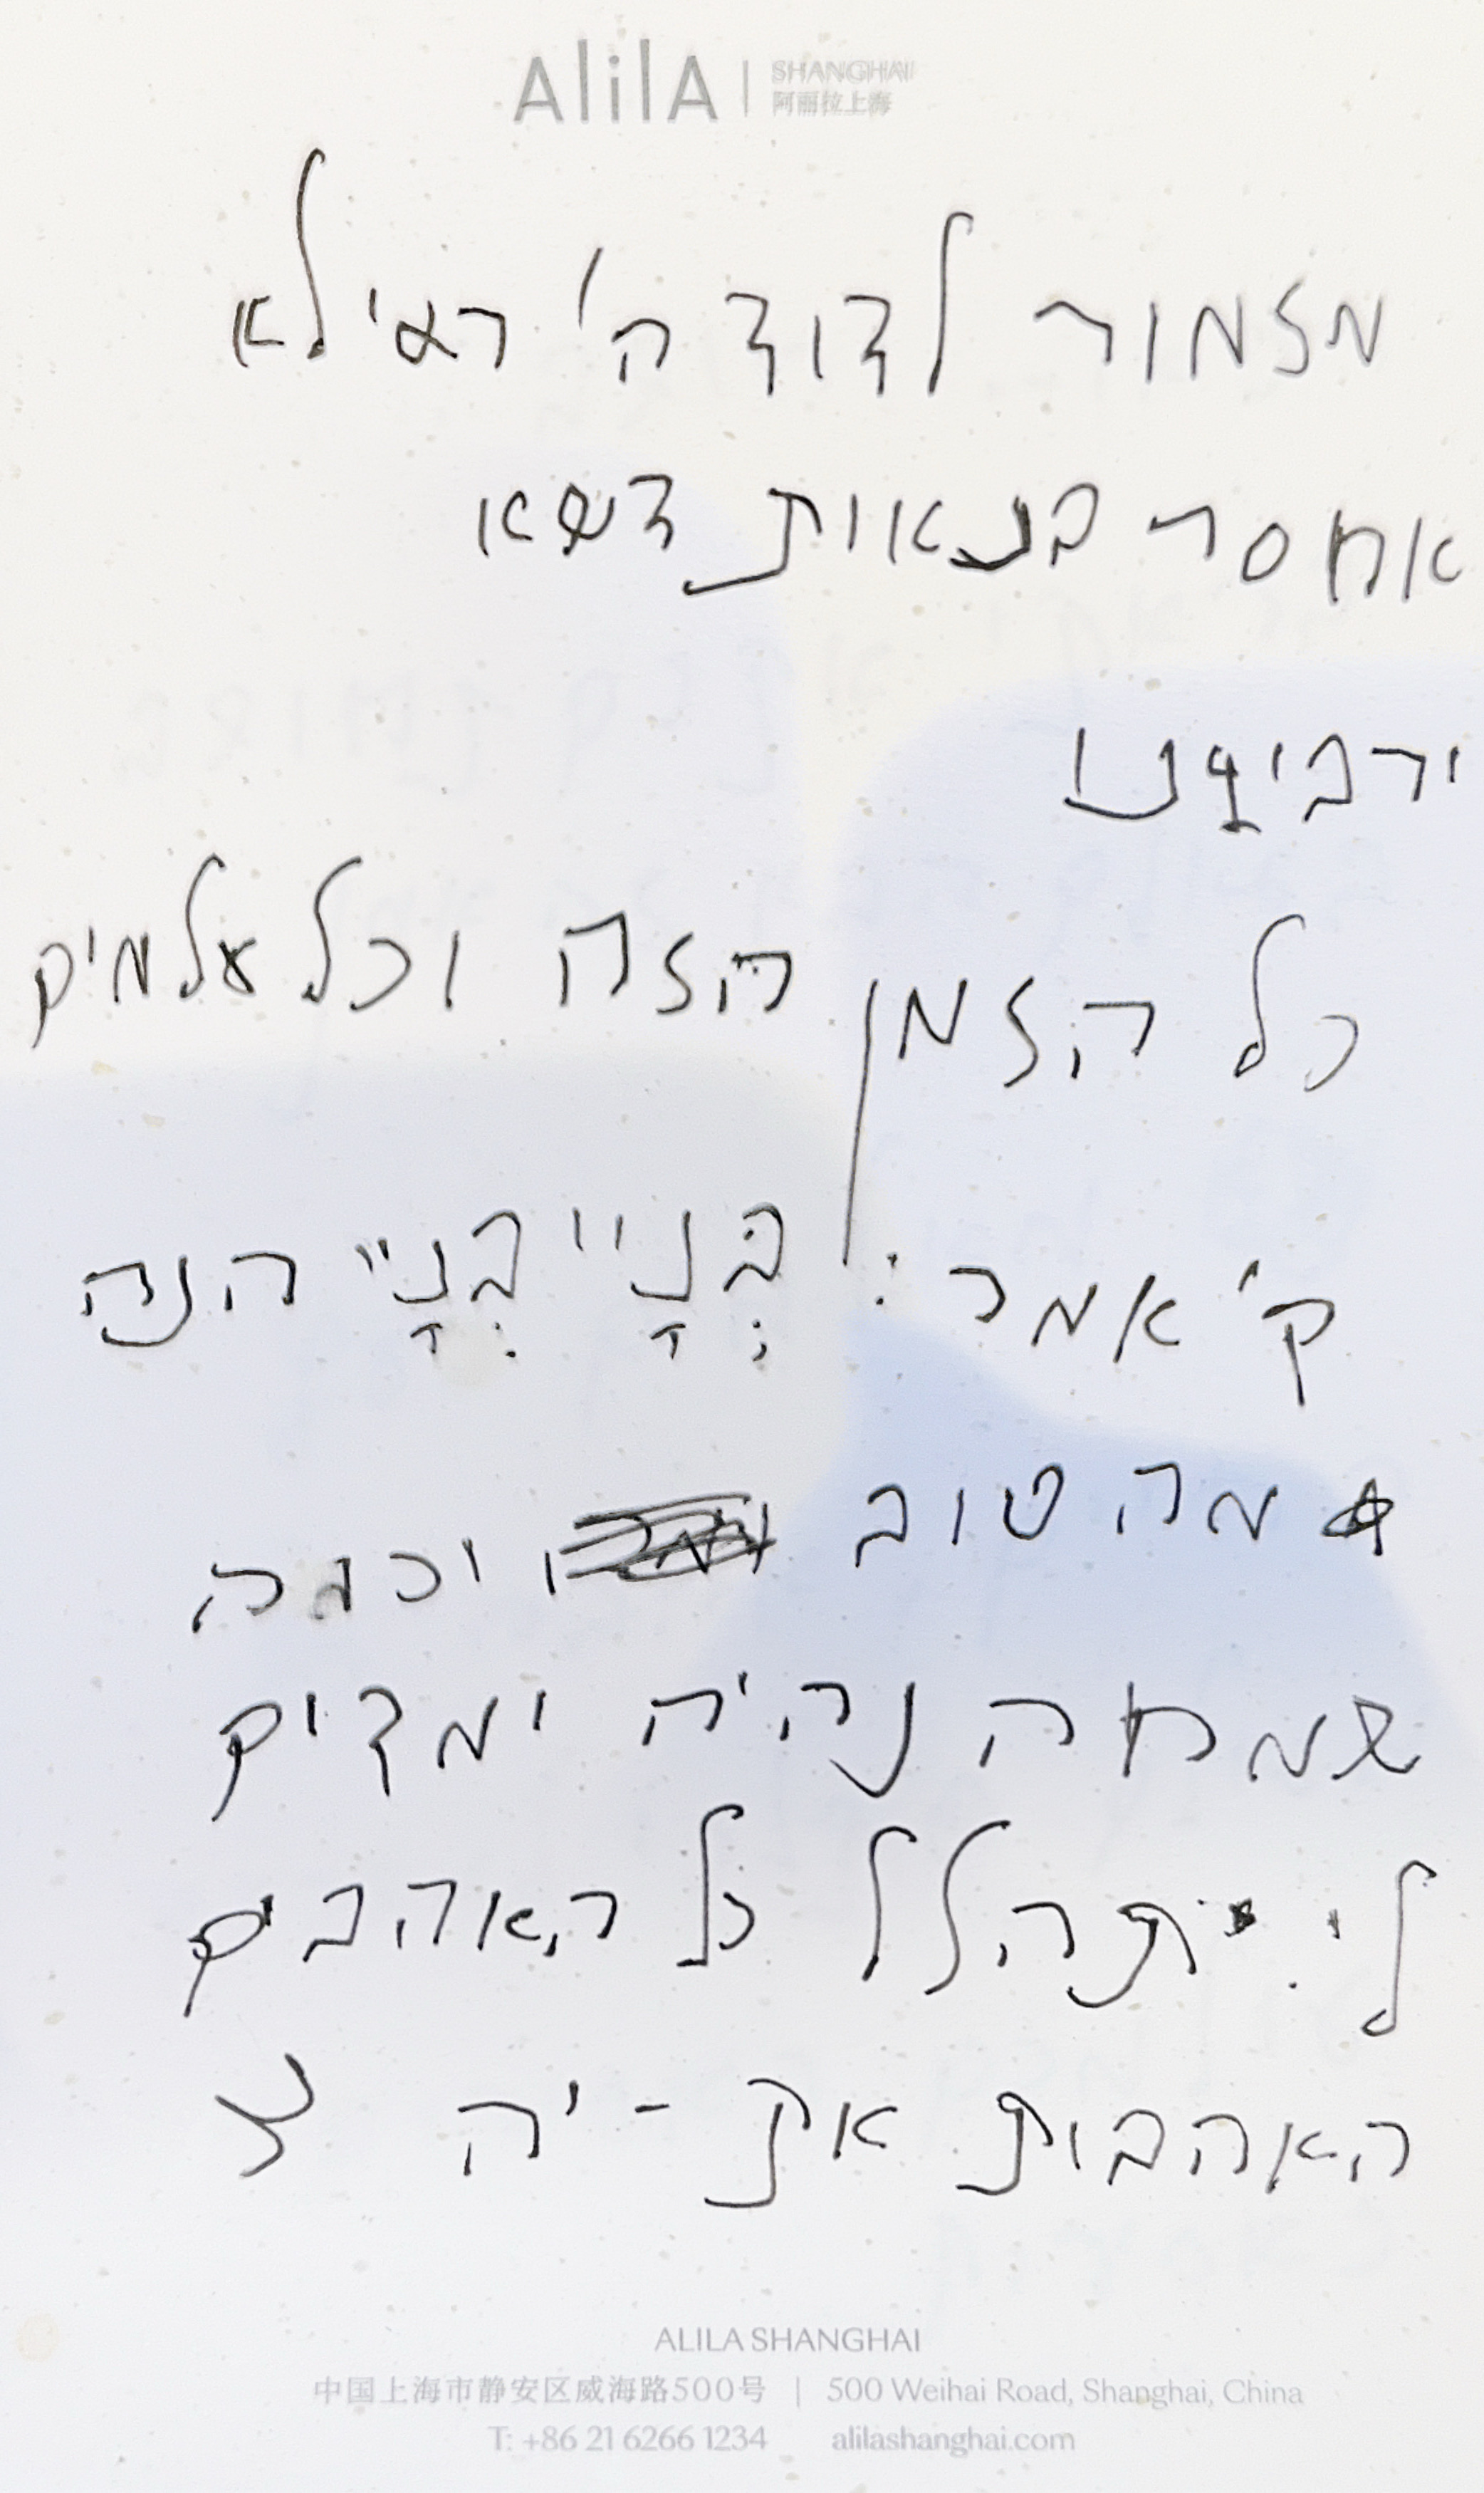 AlilA | SHANGHAI
阿丽拉上海
מזמור לדוד ה' ראי לא
אחסר בנאות דשא
ירביצנו
כל הזמן הזה וכל עלמיק
ק' אמר: בְּנָי" בְּנָי" הנה
מה טוב וכמה
שמחה נהיה ומדיק
לי. יתהלל כל האהביק
האהבות את - יה
ALILA SHANGHAI
中国上海市静安区威海路500号 | 500 Weihai Road, Shanghai, China
T: +86 21 6266 1234 alilashanghai.com